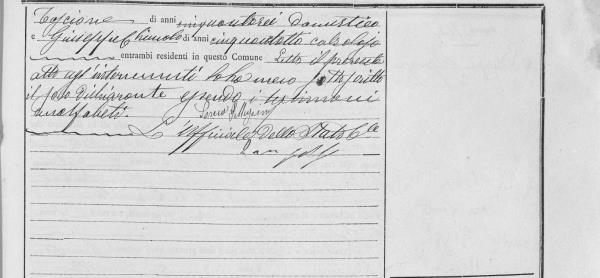 Toscione di anni cinquantasei domestico
e Giuseppe di anni cinquantotto calzolajo
entrambi residenti in questo Comune Letto il presente
atto agl'intervenuti l'ho meco sottoscritto
il solo dichiarante essendo i testimoni
analfabeti.
L'ufficiale dello Stato Cle